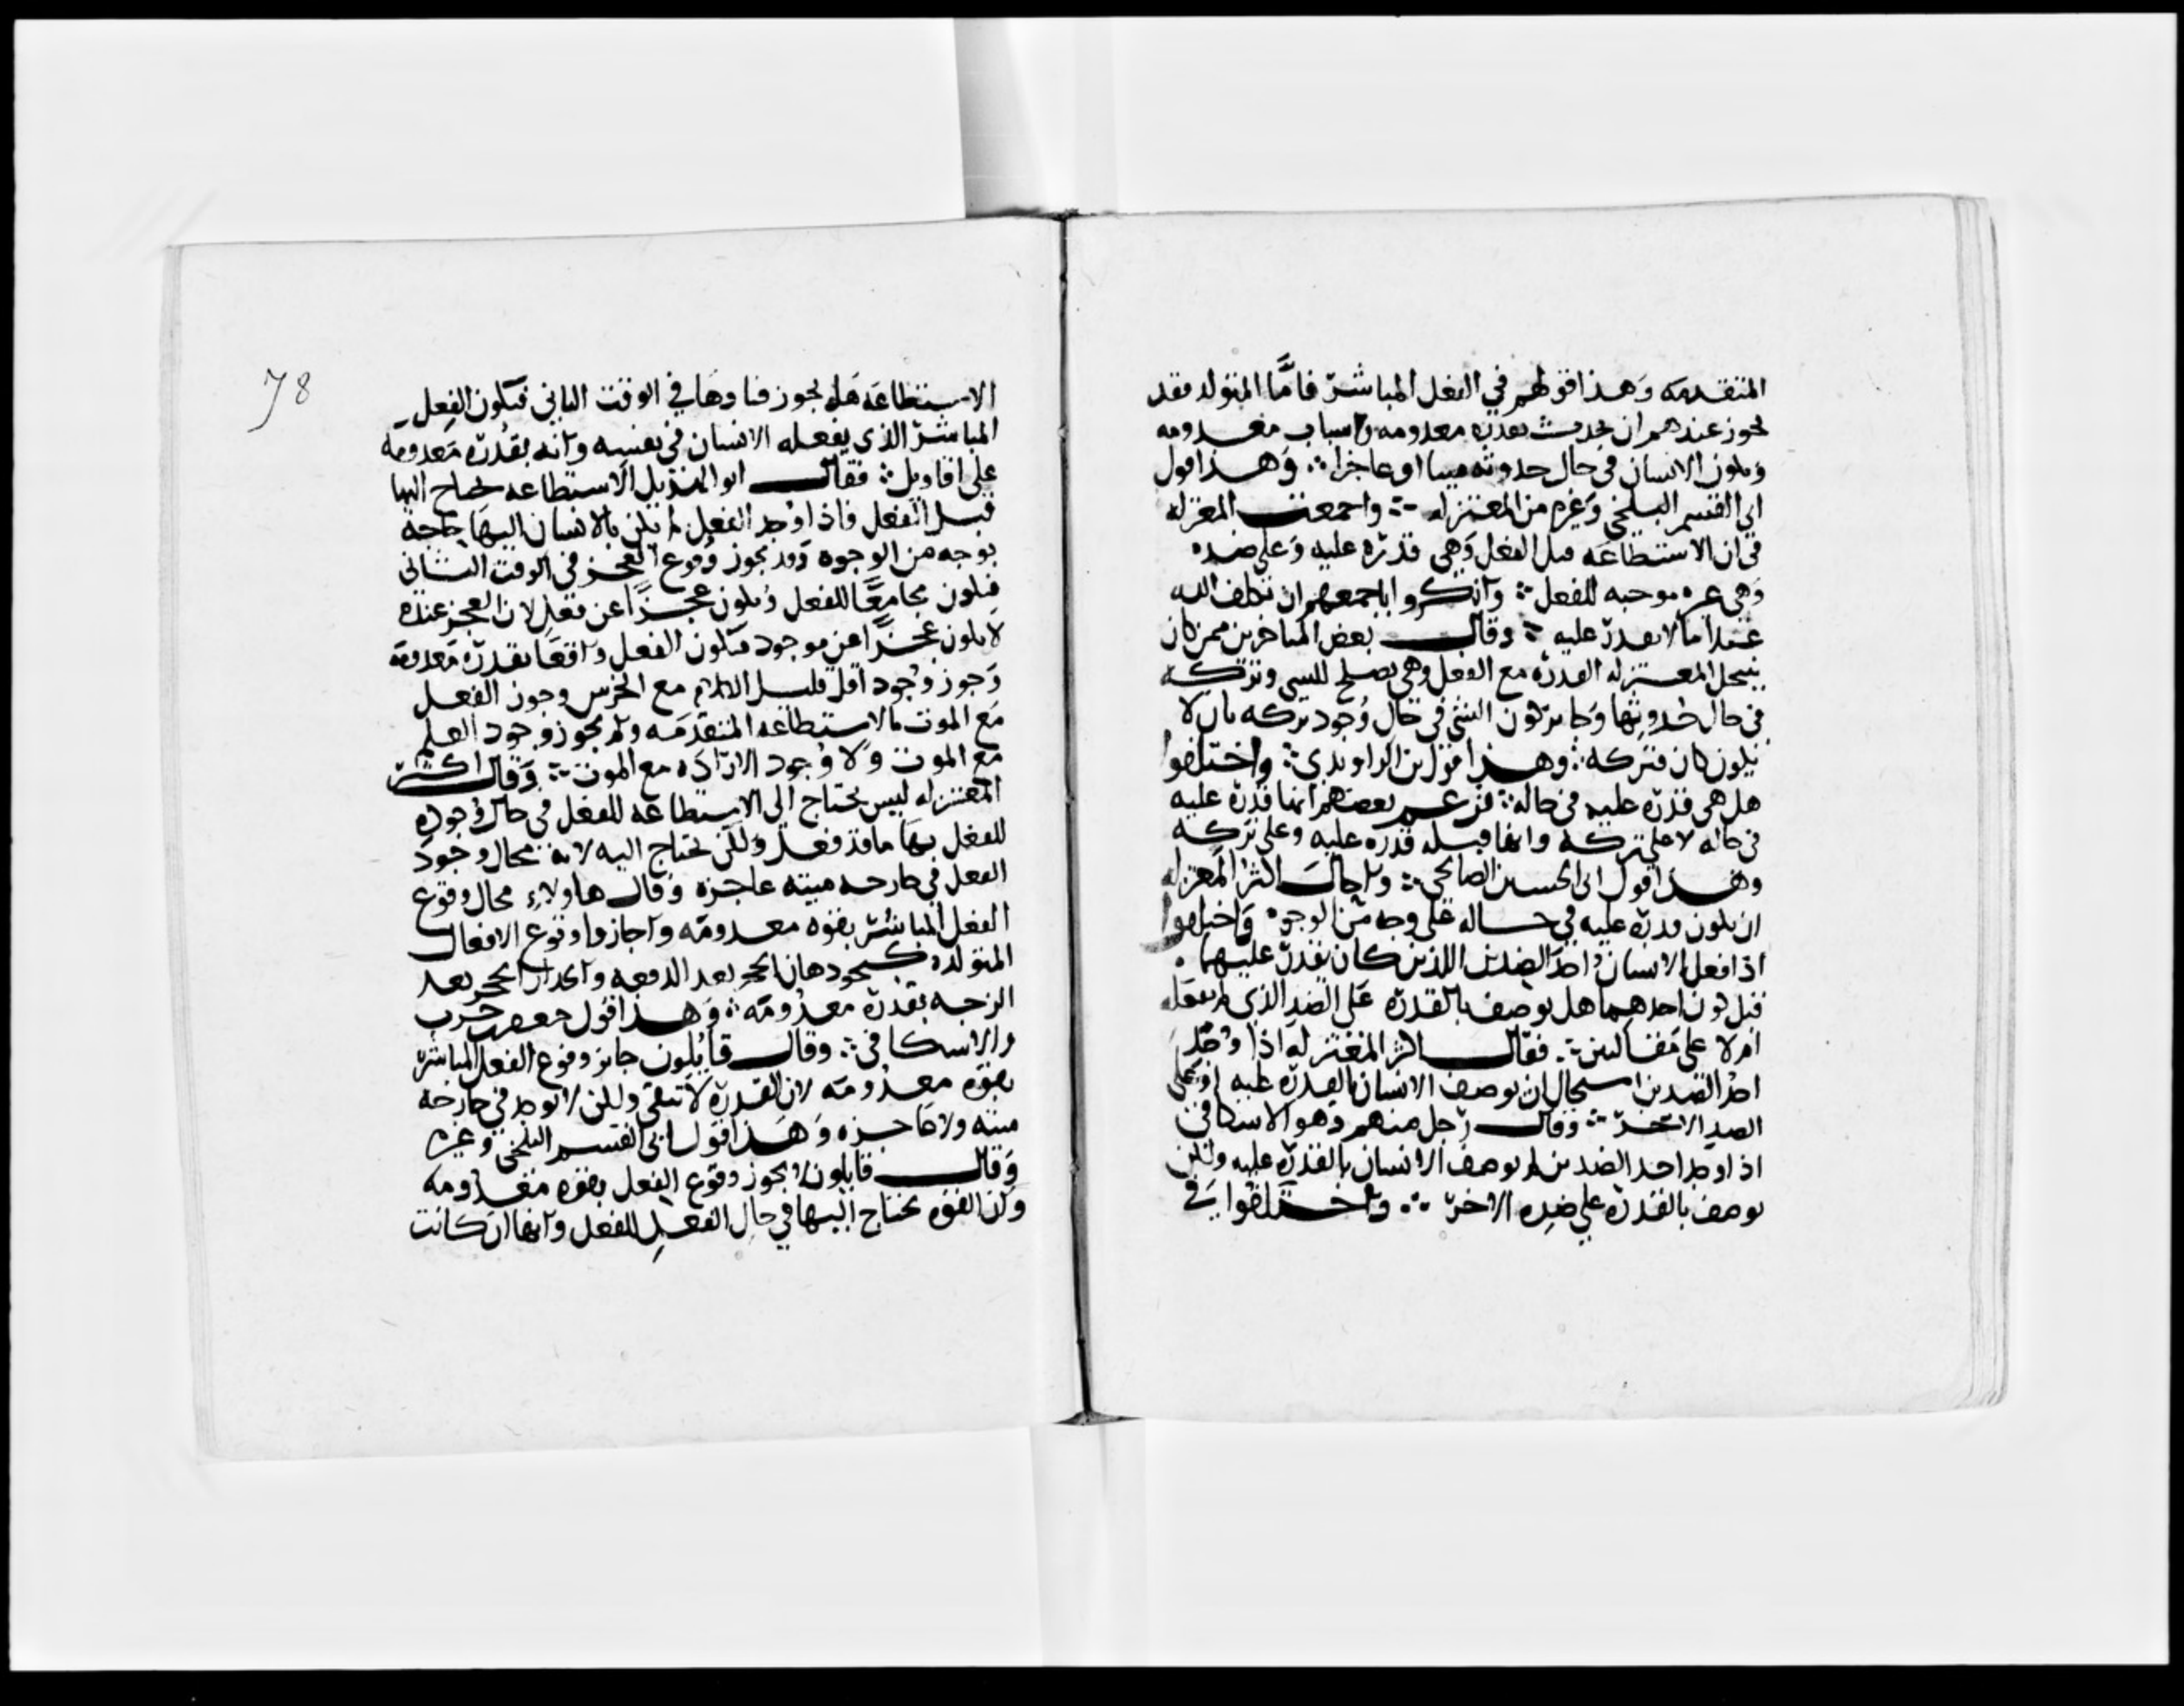 المتقدمه وهذا قولهم في الفعل المباشر فاما المتولد فقد
يجوز عندهم ان يحدث بقدره معدومه واسباب معدومه
ويكون الانسان في حال حدوثه ميتا او عاجزا ∴ وهذا قول
ابي القسم البلخي وغيره من المعتزله ∴ واجمعت المعتزله
في ان الاستطاعه قبل الفعل وهي قدره عليه وعلى ضده
وهي غير موجبه للفعل ∴ وانكروا باجمعهم ان يكلف الله
عبدا ما لا يقدر عليه ∴ وقال بعض المتاخرين ممن كان
ينتحل المعتزله القدره مع الفعل وهي يصلح للشي وتركه
في حال حدوثها وجايز كون الشي في حال وجود تركه بان لا
يكون كان فتركه ∴ وهذا قول ابن الراوندي ∴ واختلفوا
هل هي قدره عليه في حاله ∴ فزعم بعضهم انها قدره عليه
في حاله لا على تركه وانها قبله قدره عليه وعلى تركه
وهذا قول ابي الحسين الصالحي ∴ واحال اكثر المعتزله
ان يكون قدره عليه في حاله على وجه من الوجوه واختلفوا
اذا فعل الانسان احد الضدين اللذين كان يقدر عليهما
قبل كون احدهما هل يوصف بالقدره على الضد الذي لم يفعله
ام لا على مقالتين ∴ فقال اكثر المعتزله اذا وجد
احد الضدين استحال ان يوصف الانسان بالقدره عليه او على
الضد الاخر ∴ وقال رجل منهم وهو الاسكافي
اذا وجد احد الضدين لم يوصف الانسان بالقدره عليه ولكن
يوصف بالقدره على ضده الاخر ∴ واختلفوا في
78
الاستطاعه هل يجوز فناوها في الوقت الثاني فيكون الفعل
المباشر الذي يفعله الانسان في نفسه وانه بقدره معدومه
على اقاويل ∴ فقال ابو الهذيل الاستطاعه يحتاج اليها
قبل الفعل فاذا وجد الفعل لم يكن بالانسان اليها حاجه
بوجه من الوجوه وقد يجوز وقوع العجز في الوقت الثاني
فيكون مجامعا للفعل ويكون عجزا عن فعل لان العجز عنده
لا يكون عجزا عن موجود فيكون الفعل واقعا بقدره معدومه
وجوز وجود اقل قليل الكلام مع الخرس وجوز الفعل
مع الموت بالاستطاعه المتقدمه ولم يجوز وجود العلم
مع الموت ولا وجود الاراده مع الموت ∴ وقال اكثر
المعتزله ليس يحتاج الى الاستطاعه للفعل في حال وجوده
للفعل بها ما قد فعل ولكن يحتاج اليه لانه محال وجود
الفعل في جارحه ميته عاجزه وقال هاولاء محال وقوع
الفعل المباشر بقوه معدومه واجازوا وقوع الافعال
المتولده كنحو ذهاب الحجر بعد الدفعه وانحدار الحجر بعد
الزجه بقدره معدومه ∴ وهذا قول جعفر بن حرب
والاسكافي ∴ وقال قايلون جايز وقوع الفعل المباشر
بقوه معدومه لان القدره لا تبقى ولكن لا يوجد في جارحه
ميته ولا عاجزه وهذا قول ابي القسم البلخي وغيره
وقال قايلون لا يجوز وقوع الفعل بقوه معدومه
وان القوه يحتاج اليها في حال الفعل للفعل وانها ان كانت